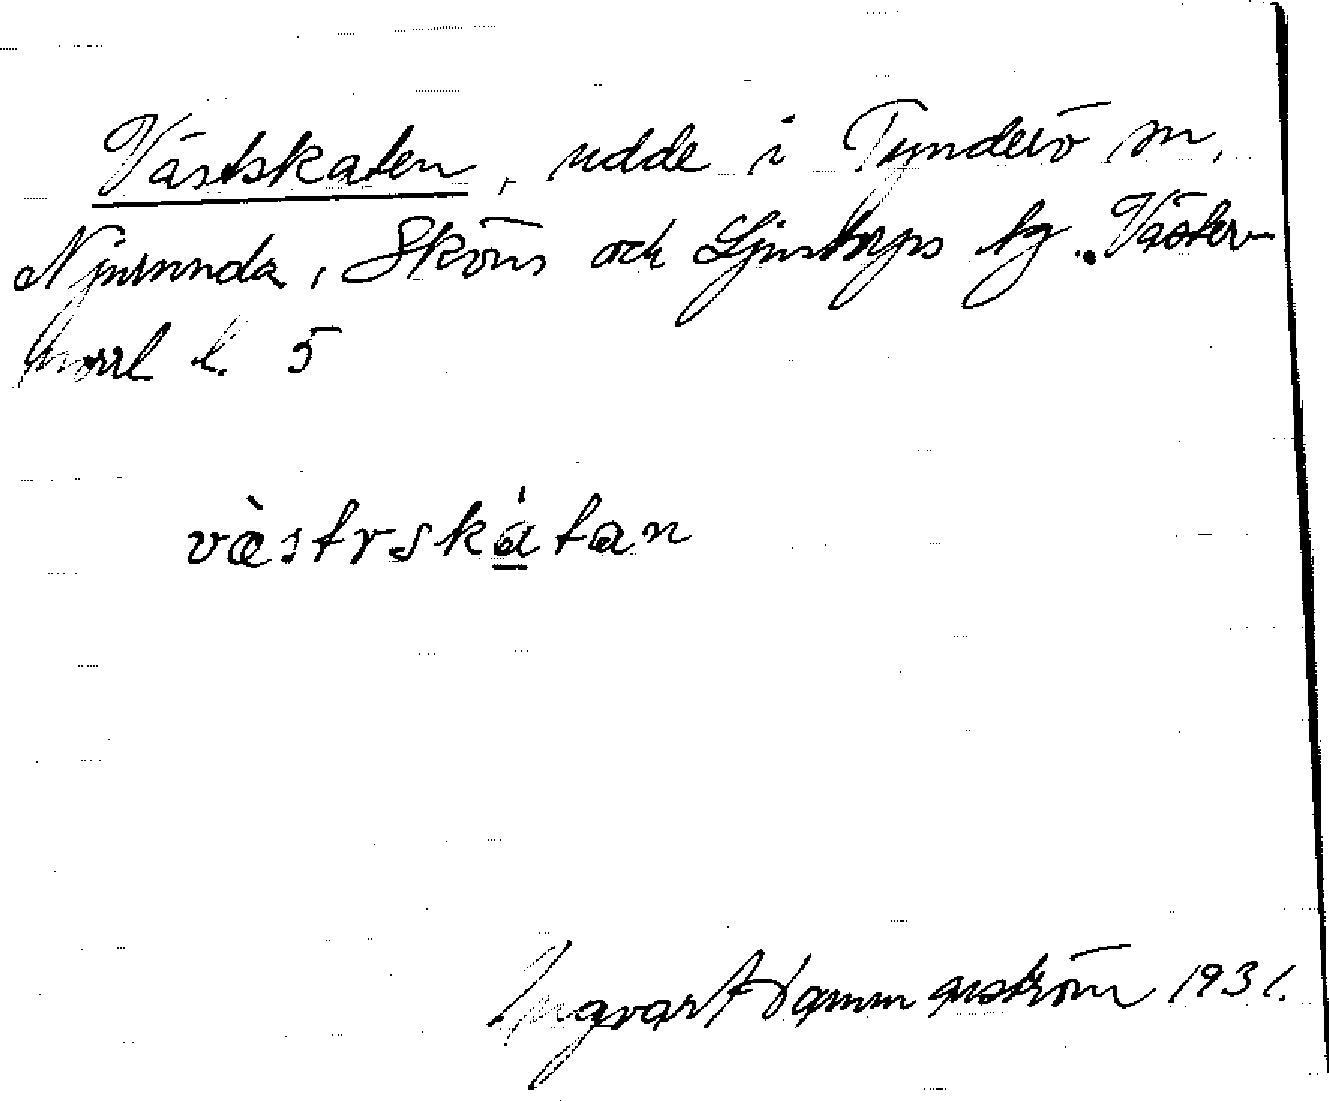 Västskaten, udde i Tynderö sn,
Njurunda, Sköns och Ljustorps tg. Väster-
norrl l. 5
vèstrskátan
Ingvar Hammarström 1931.